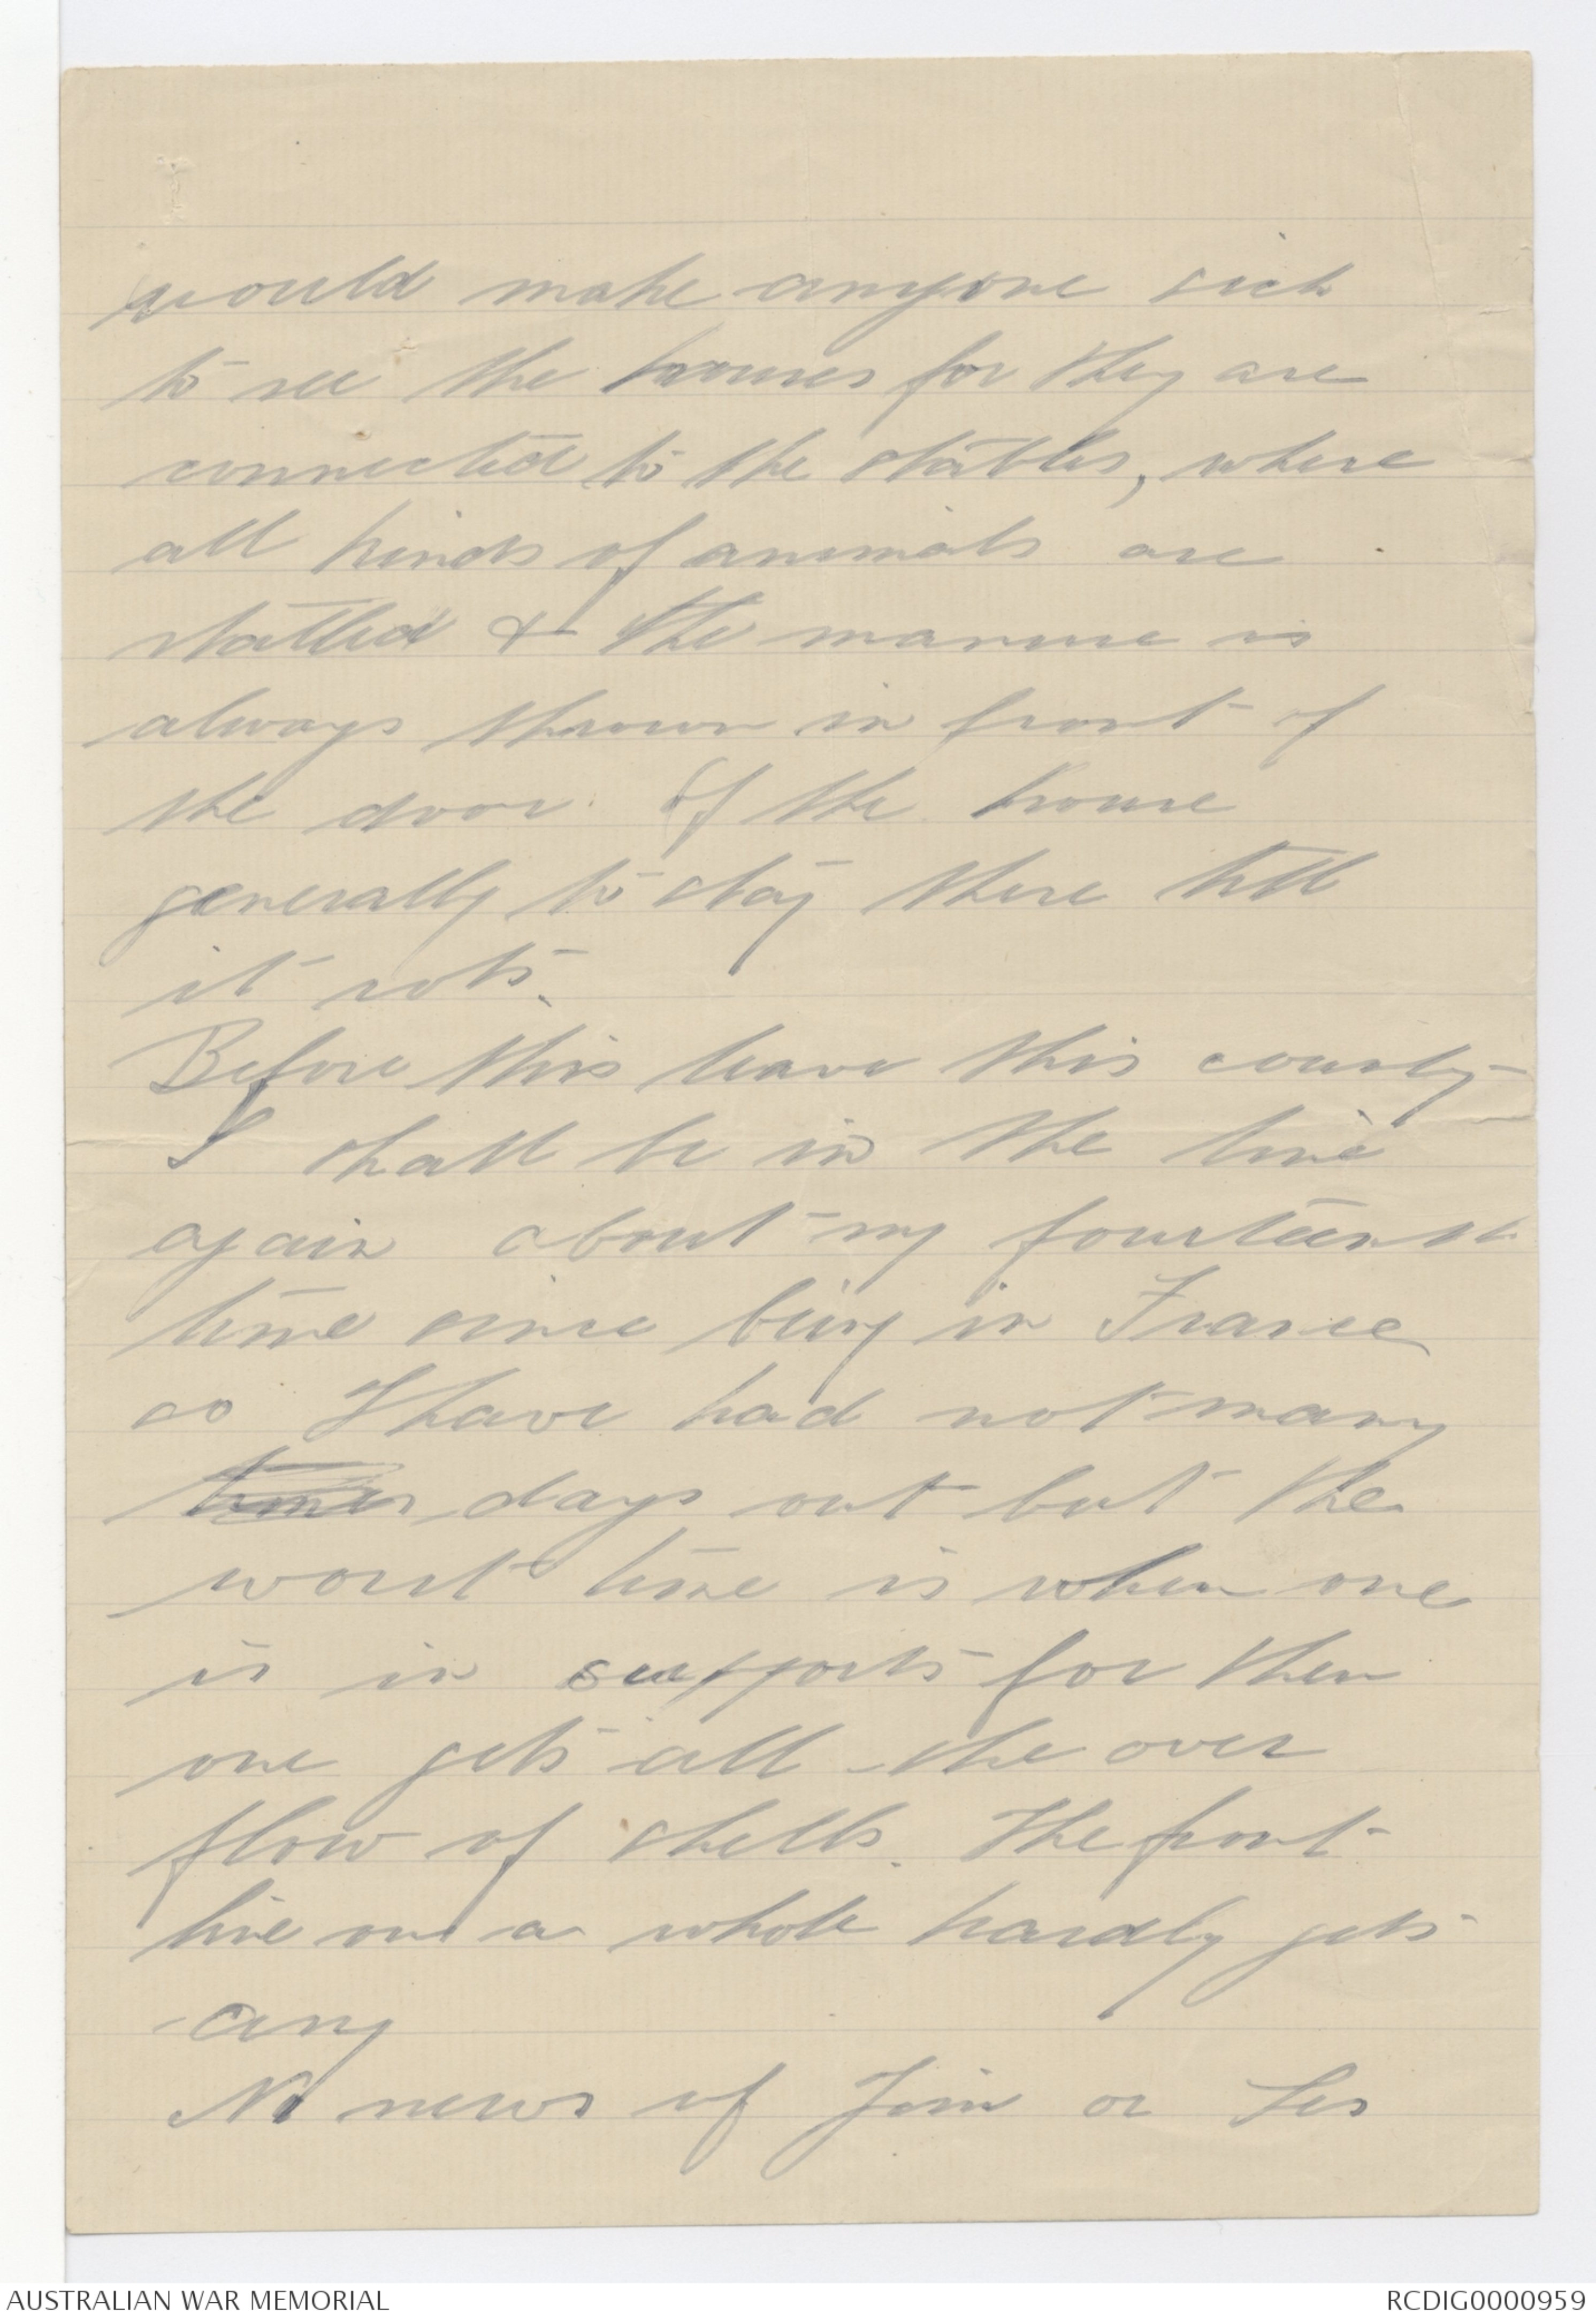 would make anyone sick
to see the houses for they are
connected to the stables, where
all kinds of animals are
stalled & the manure is
always thrown in front of
the door of the house
generally to stay there till
it rots.
Before this leave this county
I shall be in the line
again about my fourteenth
time since being in France
so I have had not many
times days out but the
worst time is when one
is in supports for then
one gets all the over
flow of shells. The front
line on a whole hardly gets
any
No news of Jim or Les
AUSTRALIAN WAR MEMORIAL
RCDIG0000959